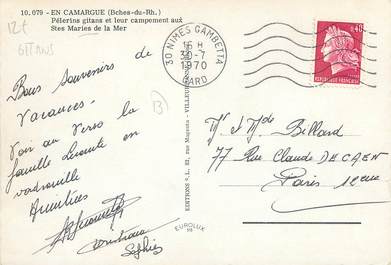 10.079 - EN CAMARGUE (Bches-du-Rh.)
Pélerins gitans et leur campement aux
Stes Maries de la Mer
12€
GITANS
30 NIMES GAMBETTA
16 H
30-7
1970
GARD
0,40
REPUBLIQUE FRANÇAISE
Bons souvenirs de
vacances -
Voir au verso la
famille en
vadrouille
Amitiées
B
EDITIONS "L. 22, rue Magenta - VILLEUR
EUROLUX
Mr & Mde Billard
77 Rue Claude DE CAEN
Paris 12eme